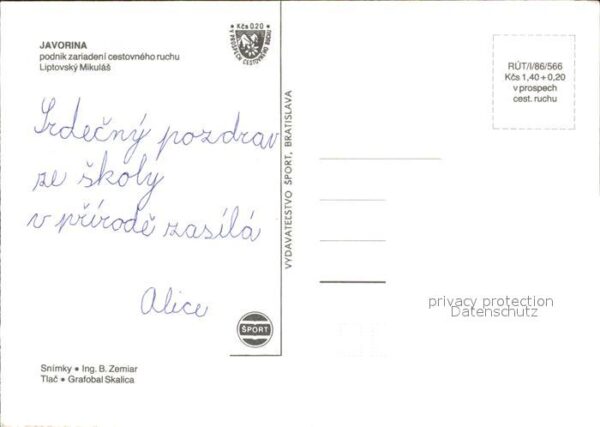 JAVORINA
podnik zariadení cestovného ruchu
Liptovský Mikuláš
Kčs 0.20
V PROSPECH CESTOVNÉHO RUCHU
RÚT/I/86/566
Kčs 1,40+0,20
v prospech
cest. ruchu
Srdečný pozdrav
ze školy
v přírodě zasílá
Alice
VYDAVATEĽSTVO ŠPORT, BRATISLAVA
ŠPORT
privacy protection
Datenschutz
Snímky • Ing. B. Zemiar
Tlač • Grafobal Skalica